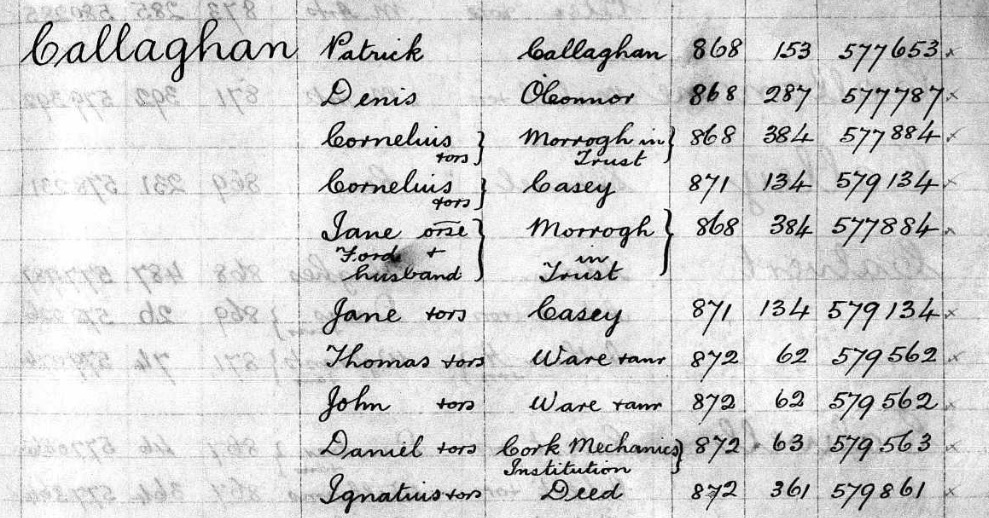 Callaghan Patrick Callaghan 868 153 577653 x
Denis O'Connor 868 287 577787 x
Cornelius } Morrogh in } 868 384 577884 x
+ors Trust
Cornelius } Casey 871 134 579134 x
+ors
Jane orse } Morrogh } 868 384 577884 x
Ford + in
husband Trust
Jane +ors Casey 871 134 579134 x
Thomas +ors Ware +anr 872 62 579562 x
John +ors Ware +anr 872 62 579562 x
Daniel +ors Cork Mechanics } 872 63 579563 x
Institution
Ignatius +ors Deed 872 361 579861 x